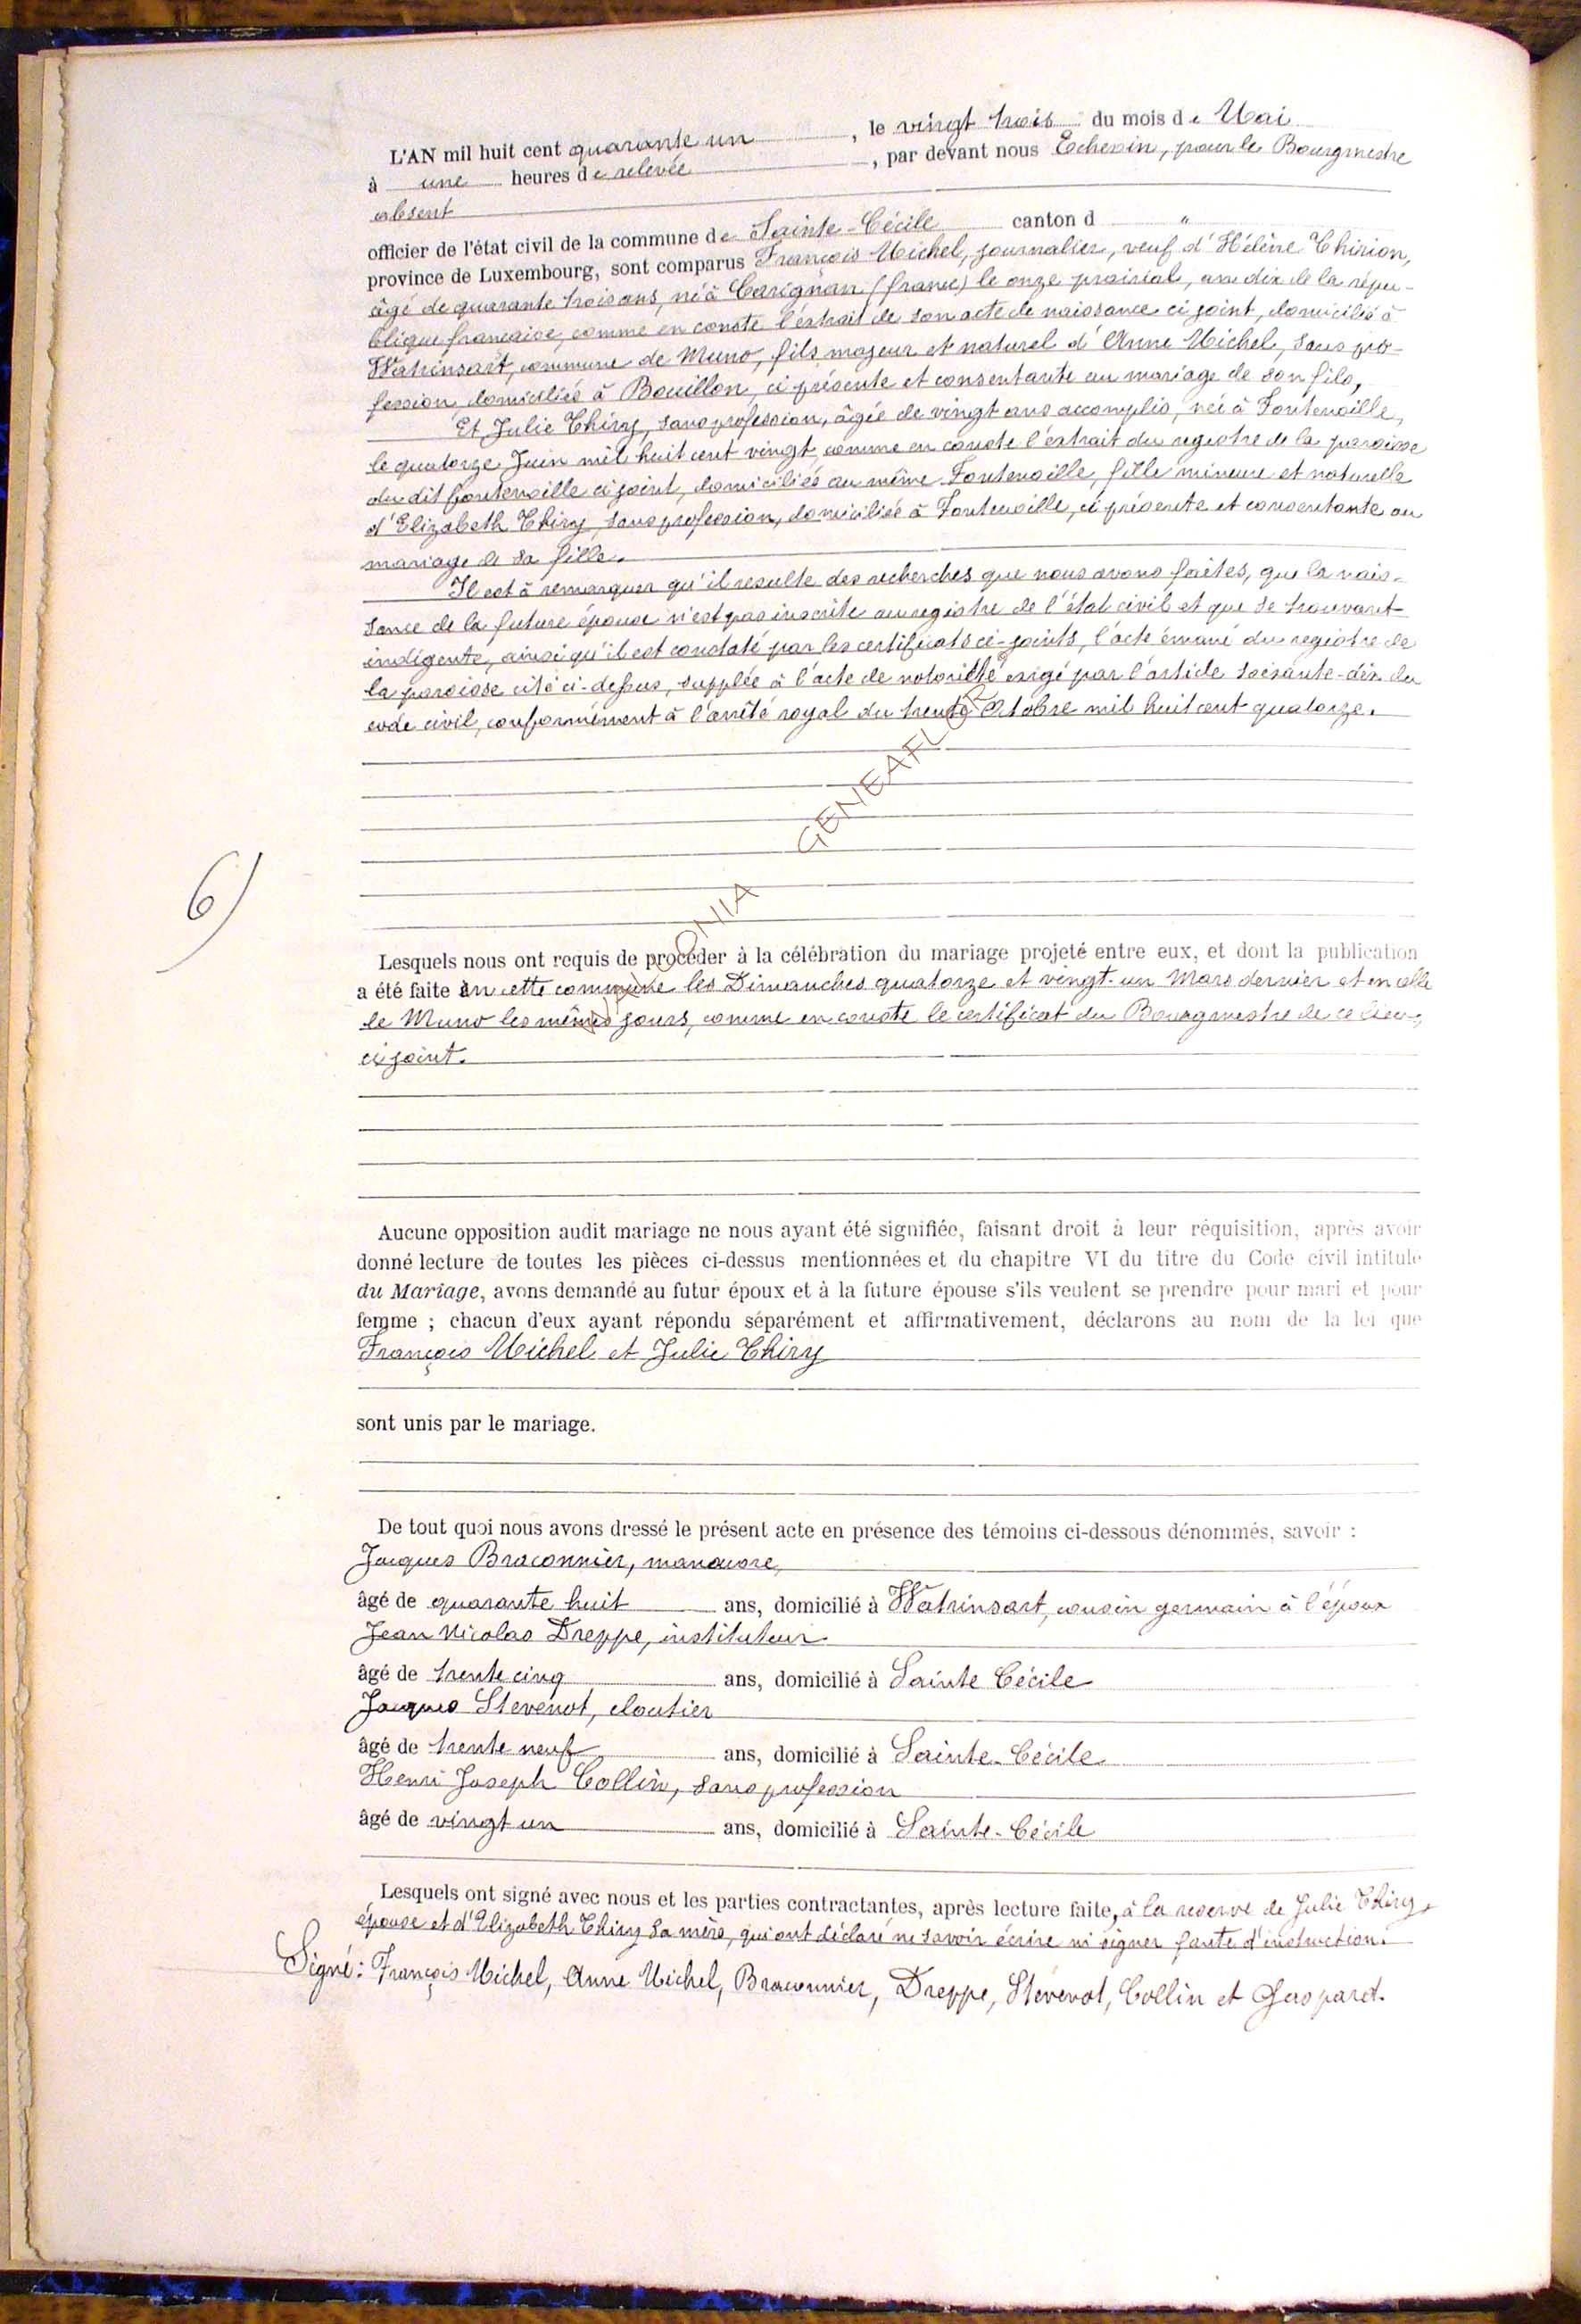 L'AN mil huit cent quarante un, le vingt trois du mois de Mai
à une heures de relevée, par devant nous Echevin, pour le Bourgmestre
absent
officier de l'état civil de la commune de Sainte-Cécile canton d "
province de Luxembourg, sont comparus François Michel, journalier, veuf d'Hélène Thirion,
âgé de quarante trois ans, né à Carignan (france) le onze prairial, an dix de la répu-
blique française, comme en conste l'extrait de son acte de naissance ci joint, domicilié à
Watrinsart, commune de Muno, fils majeur et naturel d'Anne Michel, sans pro-
fession, domiciliée à Bouillon, ci présente et consentante au mariage de son fils,
Et Julie Thiry, sans profession, âgée de vingt ans accomplis, née à Fontenoille,
le quatorze Juin mil huit cent vingt, comme en conste l'extrait du registre de la paroisse
du dit fontenoille ci joint, domiciliée au même Fontenoille, fille mineure et naturelle
d'Elizabeth Thiry, sans profession, domiciliée à Fontenoille, ci présente et consentante au
mariage de sa fille.
Il est à remarquer qu'il resulte des recherches que nous avons faites, que la nais-
sance de la future épouse n'est pas inscrite au registre de l'état civil et que se trouvant
indigente, ainsi qu'il est constaté par les certificats ci-joints, l'acte émané du registre de
la paroisse cité ci-dessus, supplée à l'acte de notoriété exigé par l'article soixante-dix du
code civil, conformément à l'arrêté royal du trente Octobre mil huit cent quatorze.
GENEAFLOR
6)
Lesquels nous ont requis de procéder à la célébration du mariage projeté entre eux, et dont la publication
a été faite en cette commune les Dimanches quatorze et vingt-un Mars dernier et en celle
de Muno les mêmes jours, comme en conste le certificat du Bourgmestre de ce lieu,
ci joint.
Aucune opposition audit mariage ne nous ayant été signifiée, faisant droit à leur réquisition, après avoir
donné lecture de toutes les pièces ci-dessus mentionnées et du chapitre VI du titre du Code civil intitulé
du Mariage, avons demandé au futur époux et à la future épouse s'ils veulent se prendre pour mari et pour
femme ; chacun d'eux ayant répondu séparément et affirmativement, déclarons au nom de la loi que
François Michel et Julie Thiry
sont unis par le mariage.
De tout quoi nous avons dressé le présent acte en présence des témoins ci-dessous dénommés, savoir :
Jacques Braconnier, manœuvre,
âgé de quarante huit ans, domicilié à Watrinsart, cousin germain à l'époux
Jean Nicolas Dreppe, instituteur
âgé de trente cinq ans, domicilié à Sainte Cécile
Jacques Stevenot, cloutier
âgé de trente neuf ans, domicilié à Sainte-Cécile
Henri Joseph Collin, sans profession
âgé de vingt un ans, domicilié à Sainte-Cécile
Lesquels ont signé avec nous et les parties contractantes, après lecture faite, à la reserve de Julie Thiry,
épouse et d'Elizabeth Thiry sa mère, qui ont déclaré ne savoir écrire ni signer faute d'instruction.
Signé : François Michel, Anne Michel, Braconnier, Dreppe, Stevenot, Collin et Gaspard.